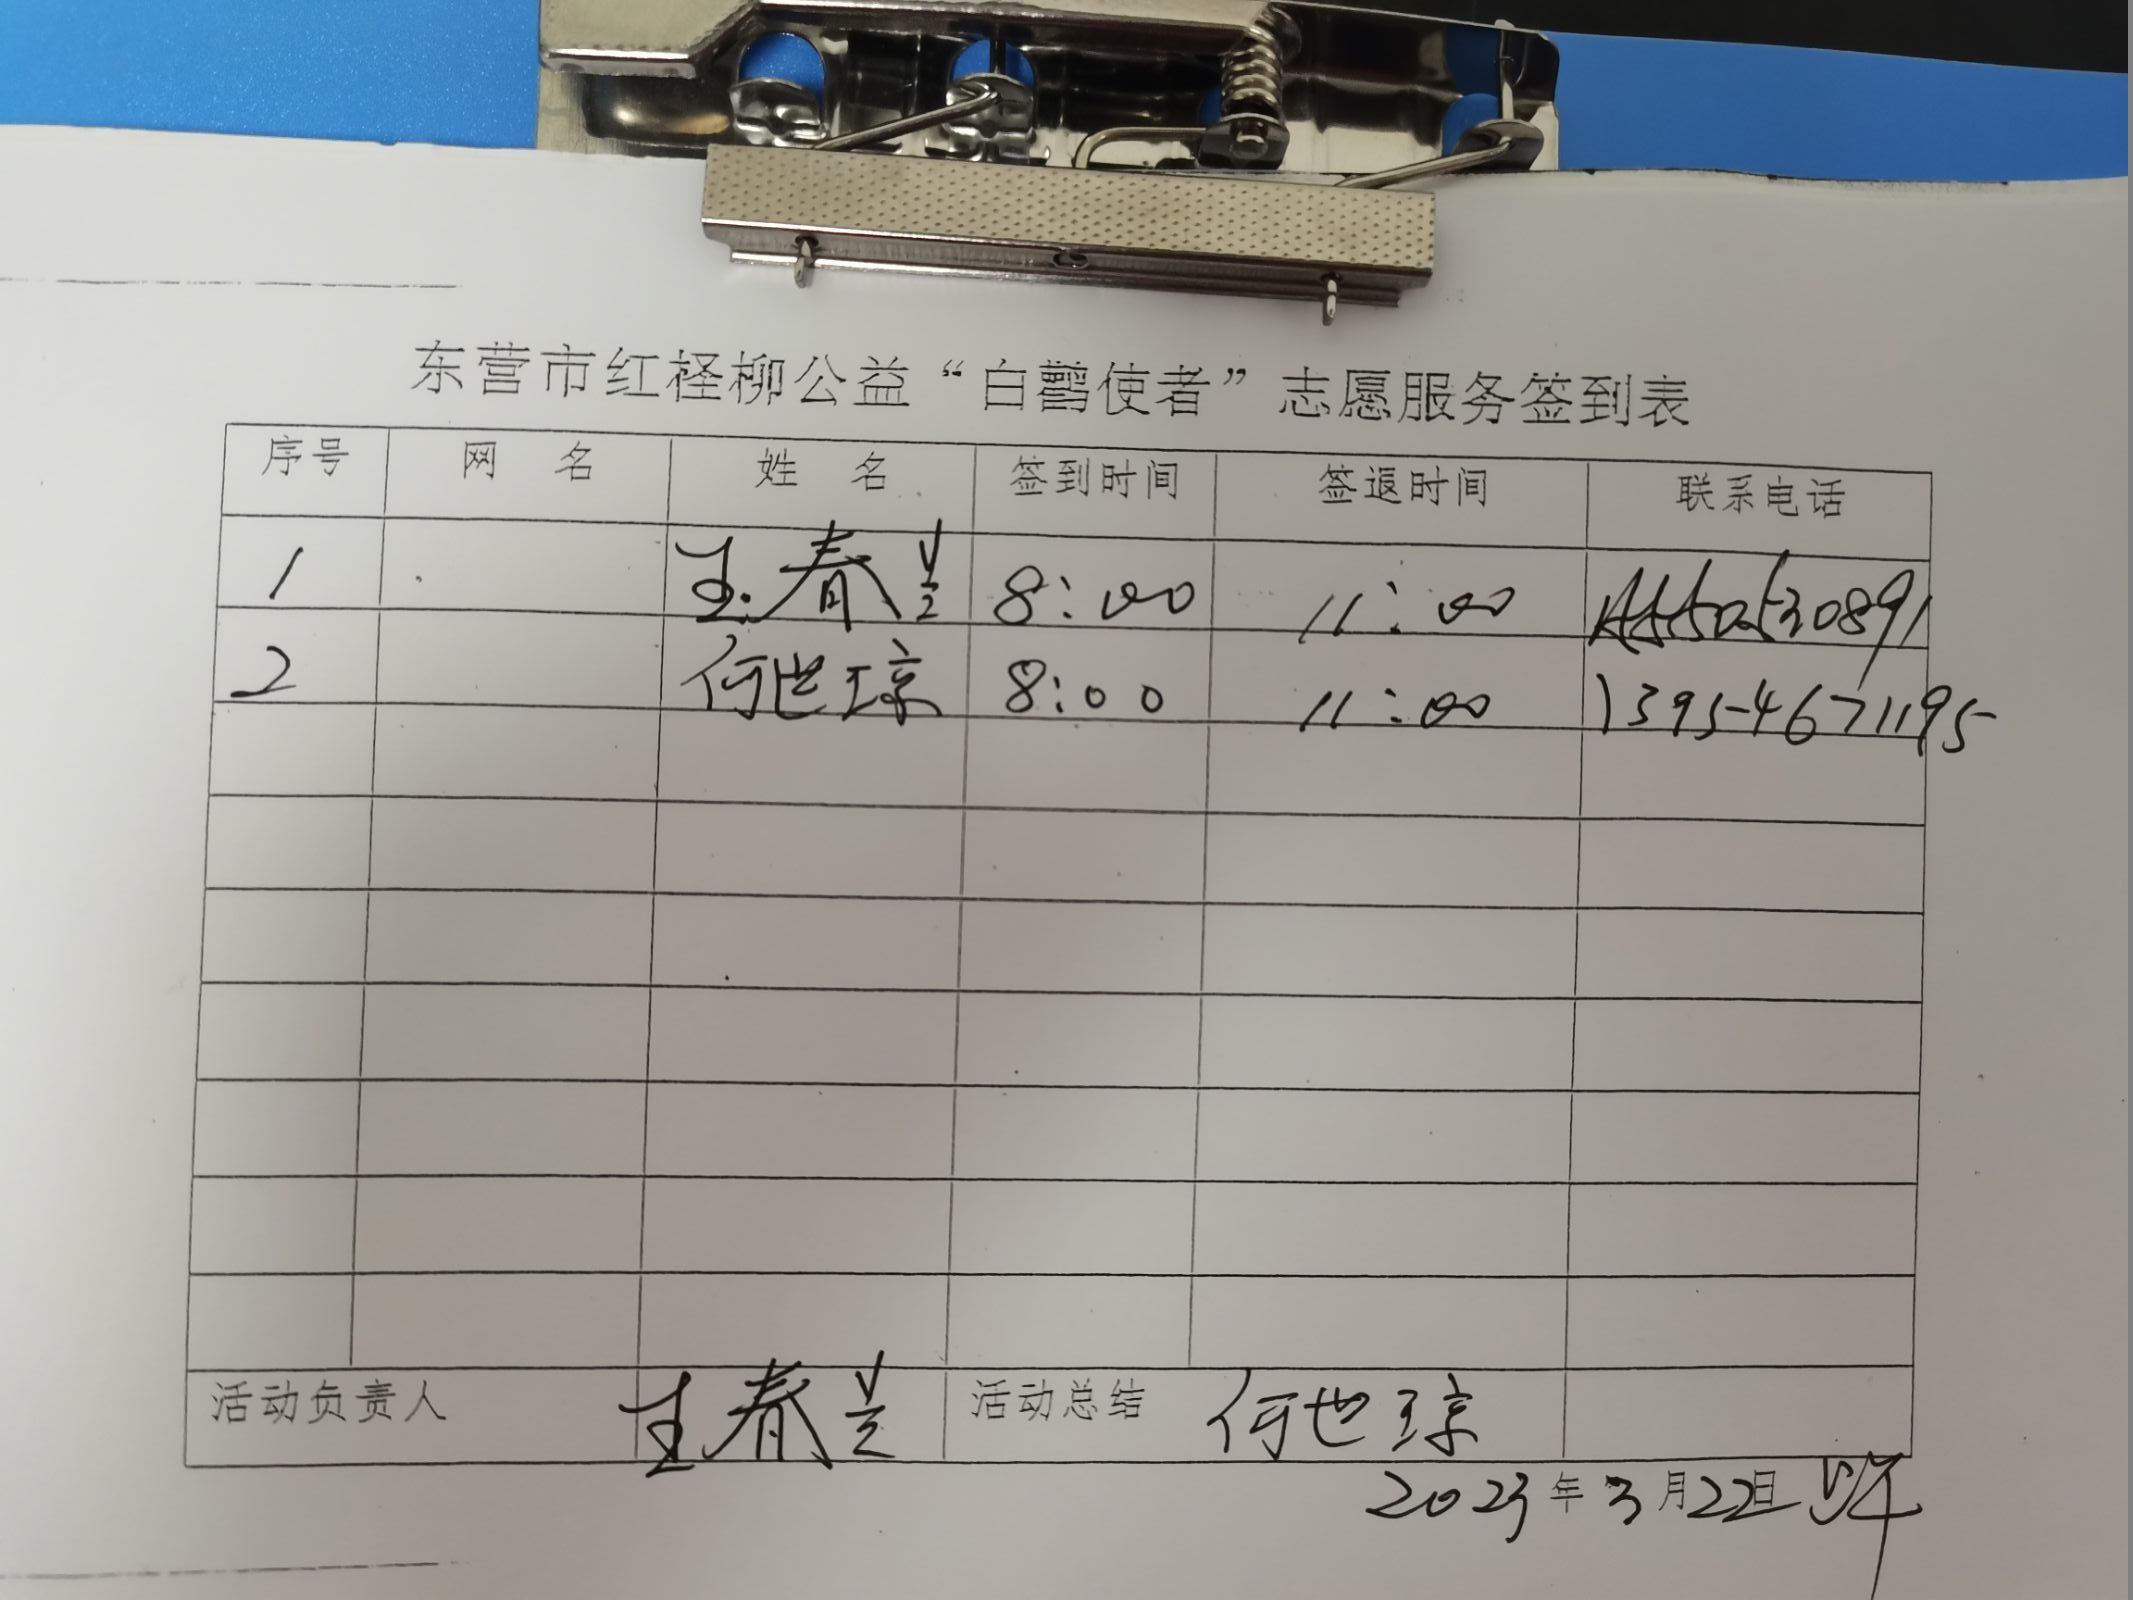 东营市红柽柳公益“白鹳使者”志愿服务签到表
序号 网 名 姓 名 签到时间 签退时间 联系电话
1 王春兰 8:00 11:00
2 何世琼 8:00 11:00 13954671195
活动负责人 王春兰 活动总结 何世琼
2023年3月22日